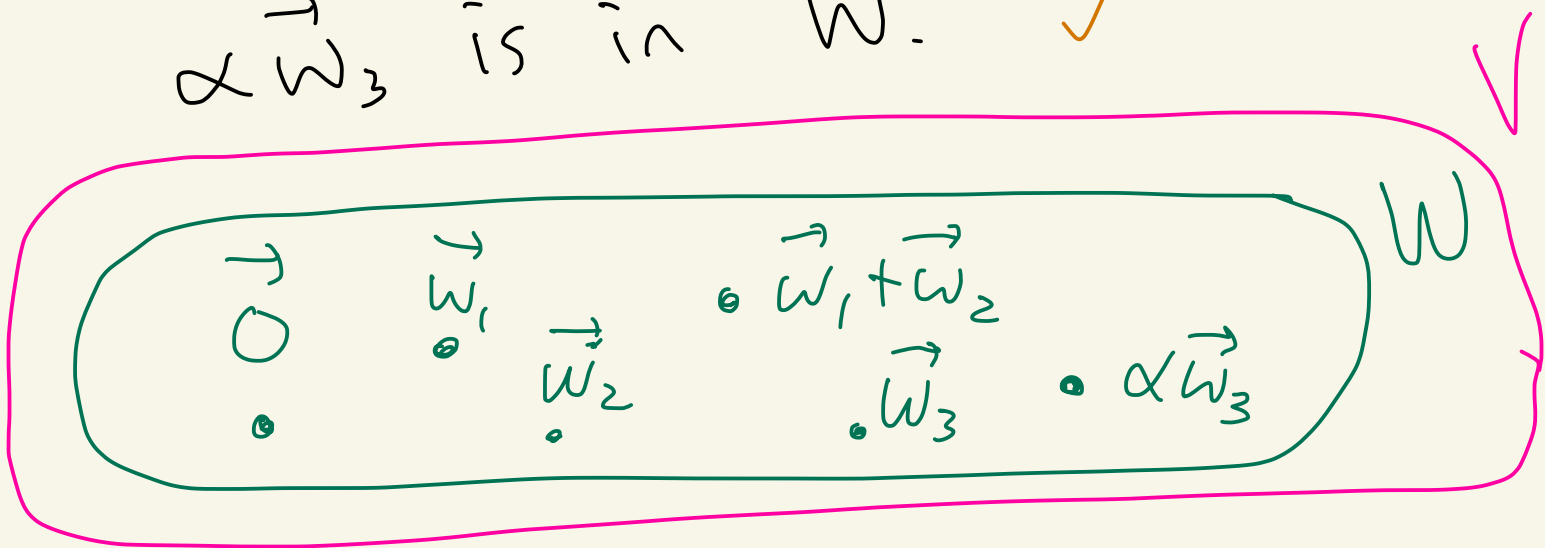 α w⃗₃ is in W.
V
W
0⃗ w⃗₁ w⃗₁ + w⃗₂
w⃗₂ w⃗₃ α w⃗₃